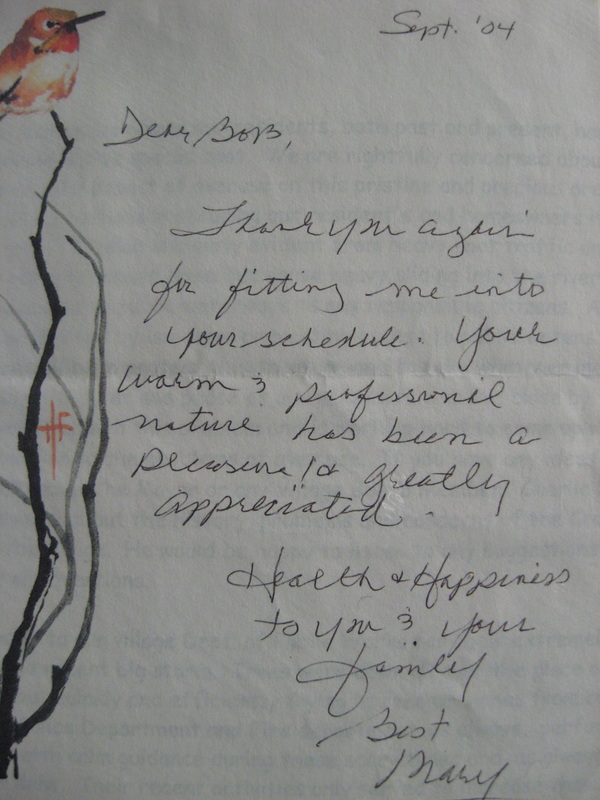 Sept. '04
Dear Bob,
Thank you again
for fitting me into
your schedule. Your
warm & professional
nature has been a
pleasure & greatly
appreciated.
Health & Happiness
to you & your
family
Best
Mary